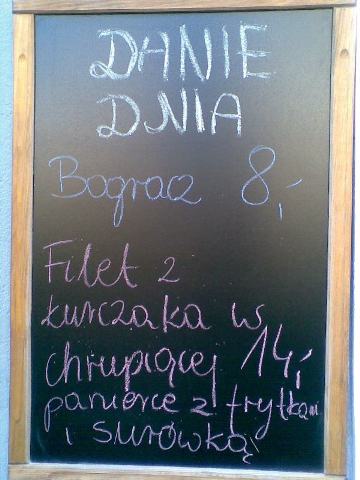 DANIE
DNIA
Bogracz 8,-
Filet z
kurczaka w
chrupiącej 14,-
panierce z frytkami
i surówką